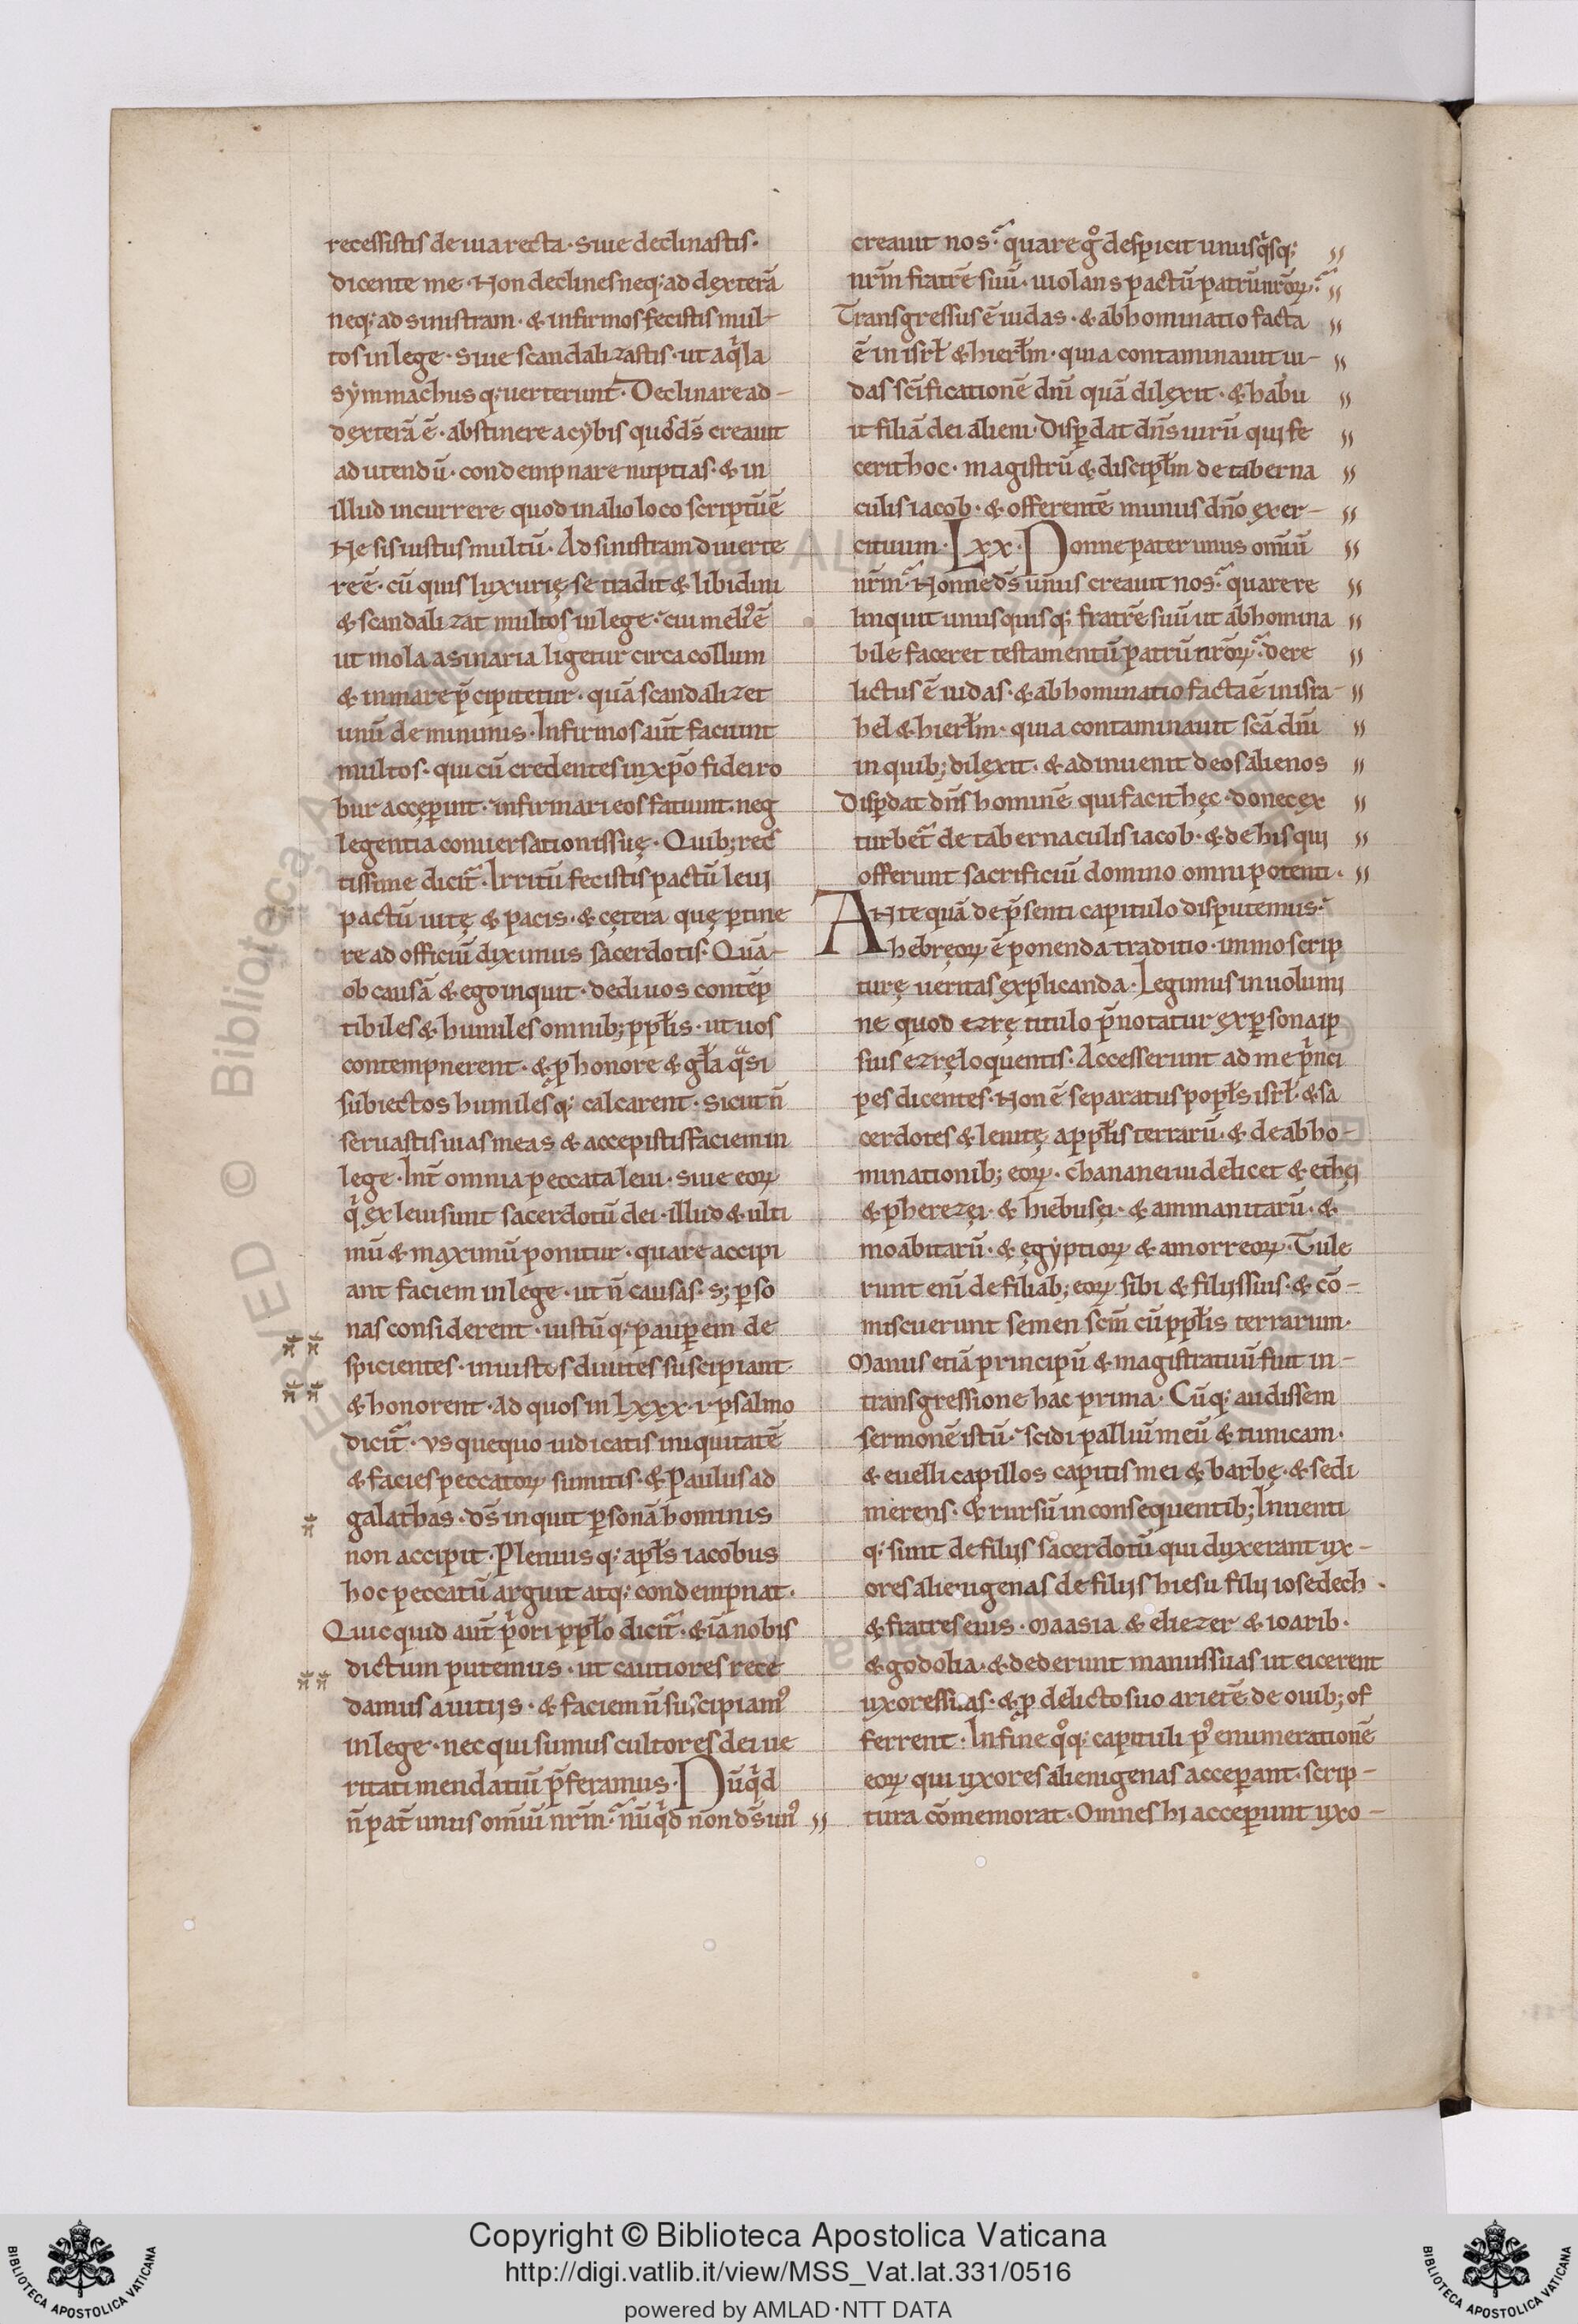 recessistis de uia recta · siue declinastis ·
dicente me · Non declines neq; ad dexterā
neq; ad sinistram · & infirmos fecistis mul-
tos in lege · siue scandalizastis · ut aqͥla
sẏmmachus q; uerterunt · Declinare ad-
dexterā ē · abstinere a cẏbis quos ds̄ creauit
ad utendū · condempnare nuptias · & in
illud incurrere quod in alio loco scriptū ē
Ne sis iustus multū · Ad sinistram diuerte
re ē · cū quis luxurię se tradit & libidini
& scandalizat multos in lege · cui meliꝰ ē
ut mola asinaria ligetur circa collum
& in mare p̄cipitetur · quā scandalizet
unū de minimis · Infirmos aut̄ faciunt
multos · qui cū credentes in xp̄o fidei ro
bur accęꝑunt · infirmari eos fatiunt · neg
legentia conuersationis suę · Quib; rec
tissime dicit᷑ · Irritū fecistis pactū leui
pactū uitę & pacis · & cętera quę ꝑtine
re ad officiū diximus sacerdotis · Quā-
ob causā & ego inquit · dedi uos contēp
tibiles & humiles omnib; ppłis · ut uos
contempnerent · & ꝓ honore & gła qͣsi
subiectos humilesq; calcarent · sicut n̄
seruastis uias meas & accepistis faciem in
lege · Int̄ omnia peccata leui · siue eoꝝ
qͥ ex leui sunt sacerdotū dei · illud & ulti
mū & maximū ponitur · quare accipi
ant faciem in lege · ut n̄ causas · s; ꝑso
nas considerent · iustū q; pauꝑem de
spicientes · iniustos diuites suscipiant
& honorent · ad quos in Lxxx · i · psalmo
dicit᷑ · vsquequo iudicatis iniquitatē
& facies peccatoꝝ sumitis · & Paulus ad
galathas · ds̄ inquit ꝑsonā hominis
non accipit · Plenius q; apłs iacobus
hoc peccatū arguit atq; condempnat ·
Quicquid aut̄ pͥori ppło dicit᷑ · & iā nobis
dictum putemus · ut cautiores rece
damus a uitijs · & faciem n̄ suscipiamꝰ
in lege · nec qui sumus cultores dei ue
ritati mendatiū p̄feramus · Nūqͥd
n̄ pat̄ unus om̄iū nr̄m · nūqͥd non ds̄ unꝰ
creauit nos · quare gͦ despicit unusqͥsq;
nr̄m fratrē suū · uiolans pactū patrū nr̄oꝝ ·
Transgressus ē iudas · & abhominatio facta
ē in isrł & hierłm · quia contaminauit iu-
das scīficationē dn̄i quā dilexit · & habu
it filiā dei alieni · Disꝑdat dn̄s uirū qui fe
cerit hoc · magistrū & discipłm de taberna
culis iacob · & offerentē munus dn̄o exer-
cituum · Lxx · Nonne pater unus om̄iū
nr̄m · Nonne ds̄ unus creauit nos · quare re
linquit unusquisq; fratrē suū ut abhomina
bile faceret testamentū patrū nr̄oꝝ · dere
lictus ē iudas · & abhominatio facta ē in isra-
hel & hierłm · quia contaminauit scā dn̄i
in quib; dilexit · & adinuenit deos alienos
Disꝑdat dn̄s hominē qui facit hęc · donec ex
turbet᷑ de tabernaculis iacob · & de his qui
offerunt sacrificiū domino omnipotenti ·
ANtequā de p̄senti capitulo disputemus ·
hebręoꝝ ē ponenda traditio · immo scrip
turę ueritas explicanda · Legimus in uolumi
ne quod ezrę titulo p̄notatur ex ꝑsona ip
sius ezrę loquentis · Accesserunt ad me pͥnci
pes dicentes · Non ē separatus popłs isrł · & sa
cerdotes & leuitę a ppłis terrarū · & de abho-
minationib; eoꝝ · chananei uidelicet & ethęi
& pherezęi · & hiebusęi · & ammanitarū · &
moabitarū · & ęgẏptioꝝ & amorreoꝝ · Tule
runt eni᷑ de filiab; eoꝝ sibi & filijs suis · & cō-
miscuerunt semen scm̄ cū ppłis terrarum ·
Manus etiā principū & magistratuū fuit in-
transgressione hac prima · Cūq; audissem
sermonē istū · scidi palliū meū & tunicam ·
& euelli capillos capitis mei & barbę · & sedi
merens · & rursū in consequentib; Inuenti
q; sunt de filijs sacerdotū qui duxerant ux-
ores alienigenas de filijs hiesu filij iosedech ·
& fratres eius · Maasia & eliezer & ioarib ·
& godolia · & dederunt manus suas ut eicerent
uxores suas · & ꝓ delicto suo arietē de ouib; of
ferrent · In fine qͦq; capituli pꝰ enumerationē
eoꝝ qui uxores alienigenas acceꝑant · scrip-
tura cōmemorat · Omnes hi acceꝑunt uxo-
Copyright © Biblioteca Apostolica Vaticana
http://digi.vatlib.it/view/MSS_Vat.lat.331/0516
powered by AMLAD·NTT DATA
BIBLIOTECA APOSTOLICA VATICANA
BIBLIOTECA APOSTOLICA VATICANA